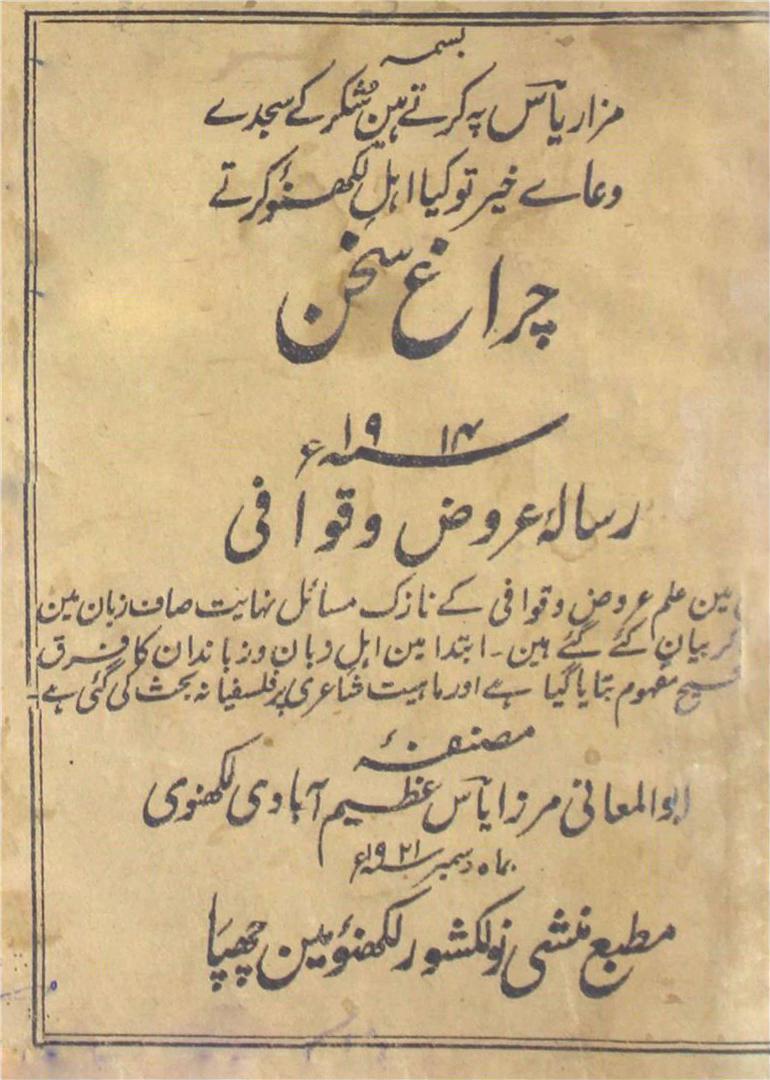 بسمہ
مزار یاس پہ کرتے ہین شکر کے سجدے
دعاے خیر تو کیا اہل لکھنؤ کرتے
چراغ سخن
سنہ ۱۹۱۴ء
رسالۂ عروض و قوافی
مین علم عروض و قوافی کے نازک مسائل نہایت صاف زبان مین
بیان کئے گئے ہین۔ ابتدا مین اہل زبان و زباندان کا فرق
مفہوم بتایا گیا ہے اور ماہیت شاعری پر فلسفیانہ بحث کی گئی ہے
مصنفۂ
ابوالمعانی مرزا یاس عظیم آبادی لکھنوی
بماہ دسمبر سنہ ۱۹۲۱ء
مطبع منشی نولکشور لکھنؤ مین چھپا